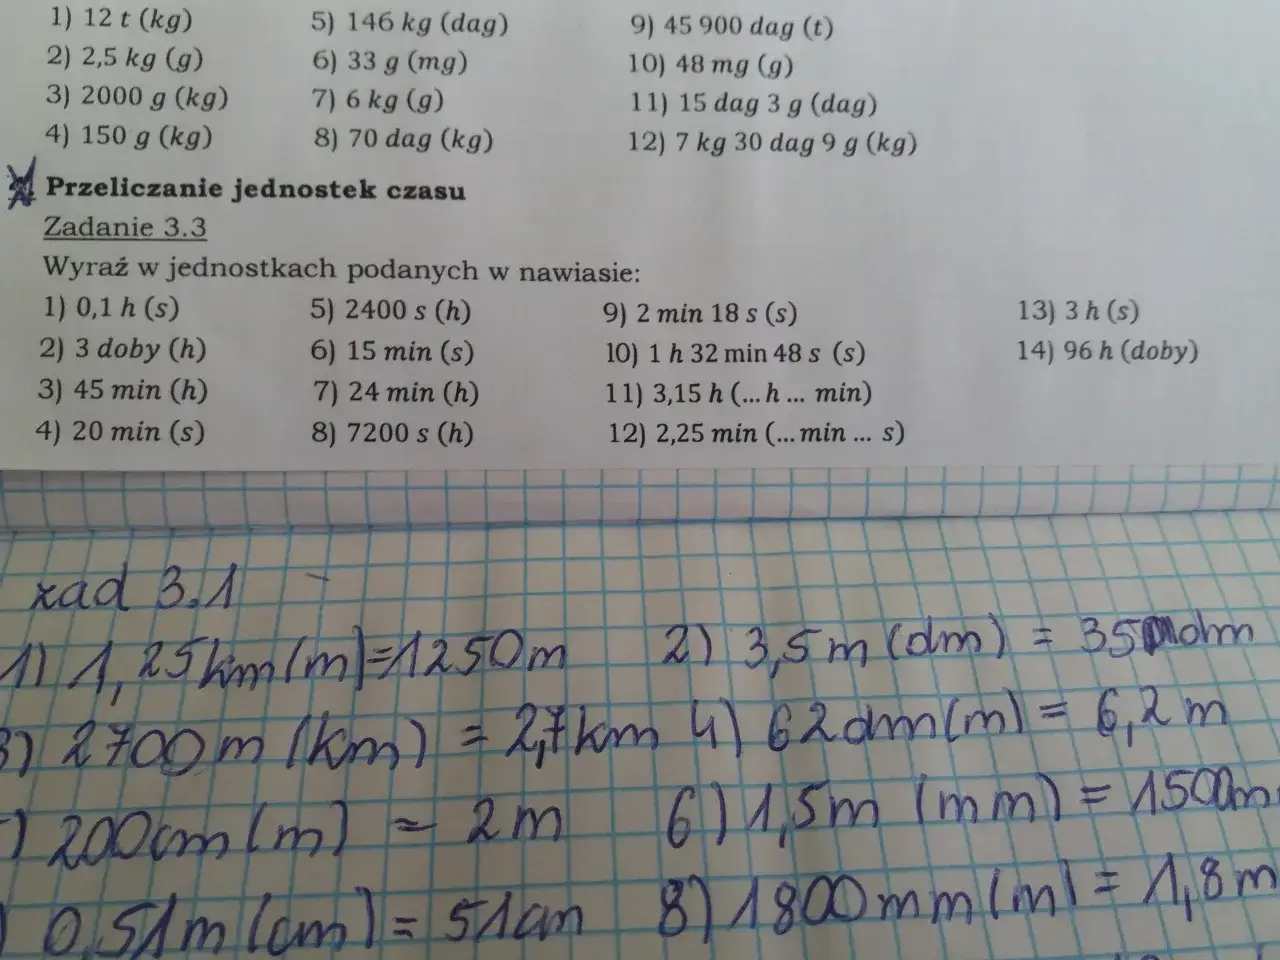 1) 12 t (kg) 5) 146 kg (dag) 9) 45 900 dag (t)
2) 2,5 kg (g) 6) 33 g (mg) 10) 48 mg (g)
3) 2000 g (kg) 7) 6 kg (g) 11) 15 dag 3 g (dag)
4) 150 g (kg) 8) 70 dag (kg) 12) 7 kg 30 dag 9 g (kg)
Przeliczanie jednostek czasu
Zadanie 3.3
Wyraź w jednostkach podanych w nawiasie:
1) 0,1 h (s) 5) 2400 s (h) 9) 2 min 18 s (s) 13) 3 h (s)
2) 3 doby (h) 6) 15 min (s) 10) 1 h 32 min 48 s (s) 14) 96 h (doby)
3) 45 min (h) 7) 24 min (h) 11) 3,15 h (... h ... min)
4) 20 min (s) 8) 7200 s (h) 12) 2,25 min (... min ... s)
zad 3.1
1) 1,25km(m)=1250m 2) 3,5m(dm) = 35dm
3) 2700m(km) = 2,7km 4) 62dm(m) = 6,2m
) 200cm(m) = 2m 6) 1,5m (mm) = 1500m
) 0,51m(cm) = 51cm 8) 1800mm(m) = 1,8m